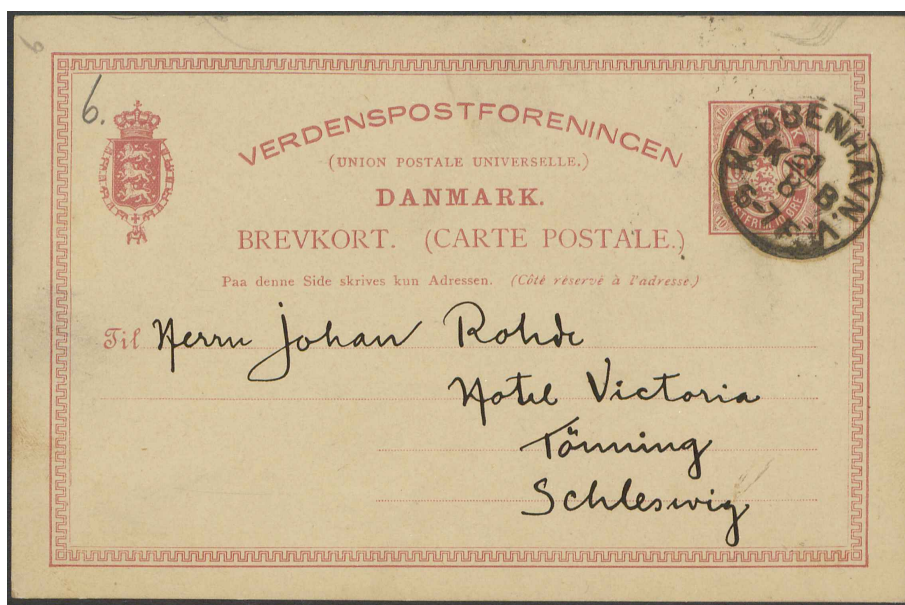 6.
VERDENSPOSTFORENINGEN
(UNION POSTALE UNIVERSELLE.)
DANMARK.
BREVKORT. (CARTE POSTALE.)
Paa denne Side skrives kun Adressen. (Côté réservé à l'adresse.)
Til Herrn Johan Rohde
Hotel Victoria
Tönning
Schleswig
KJØBENHAVN
10
10